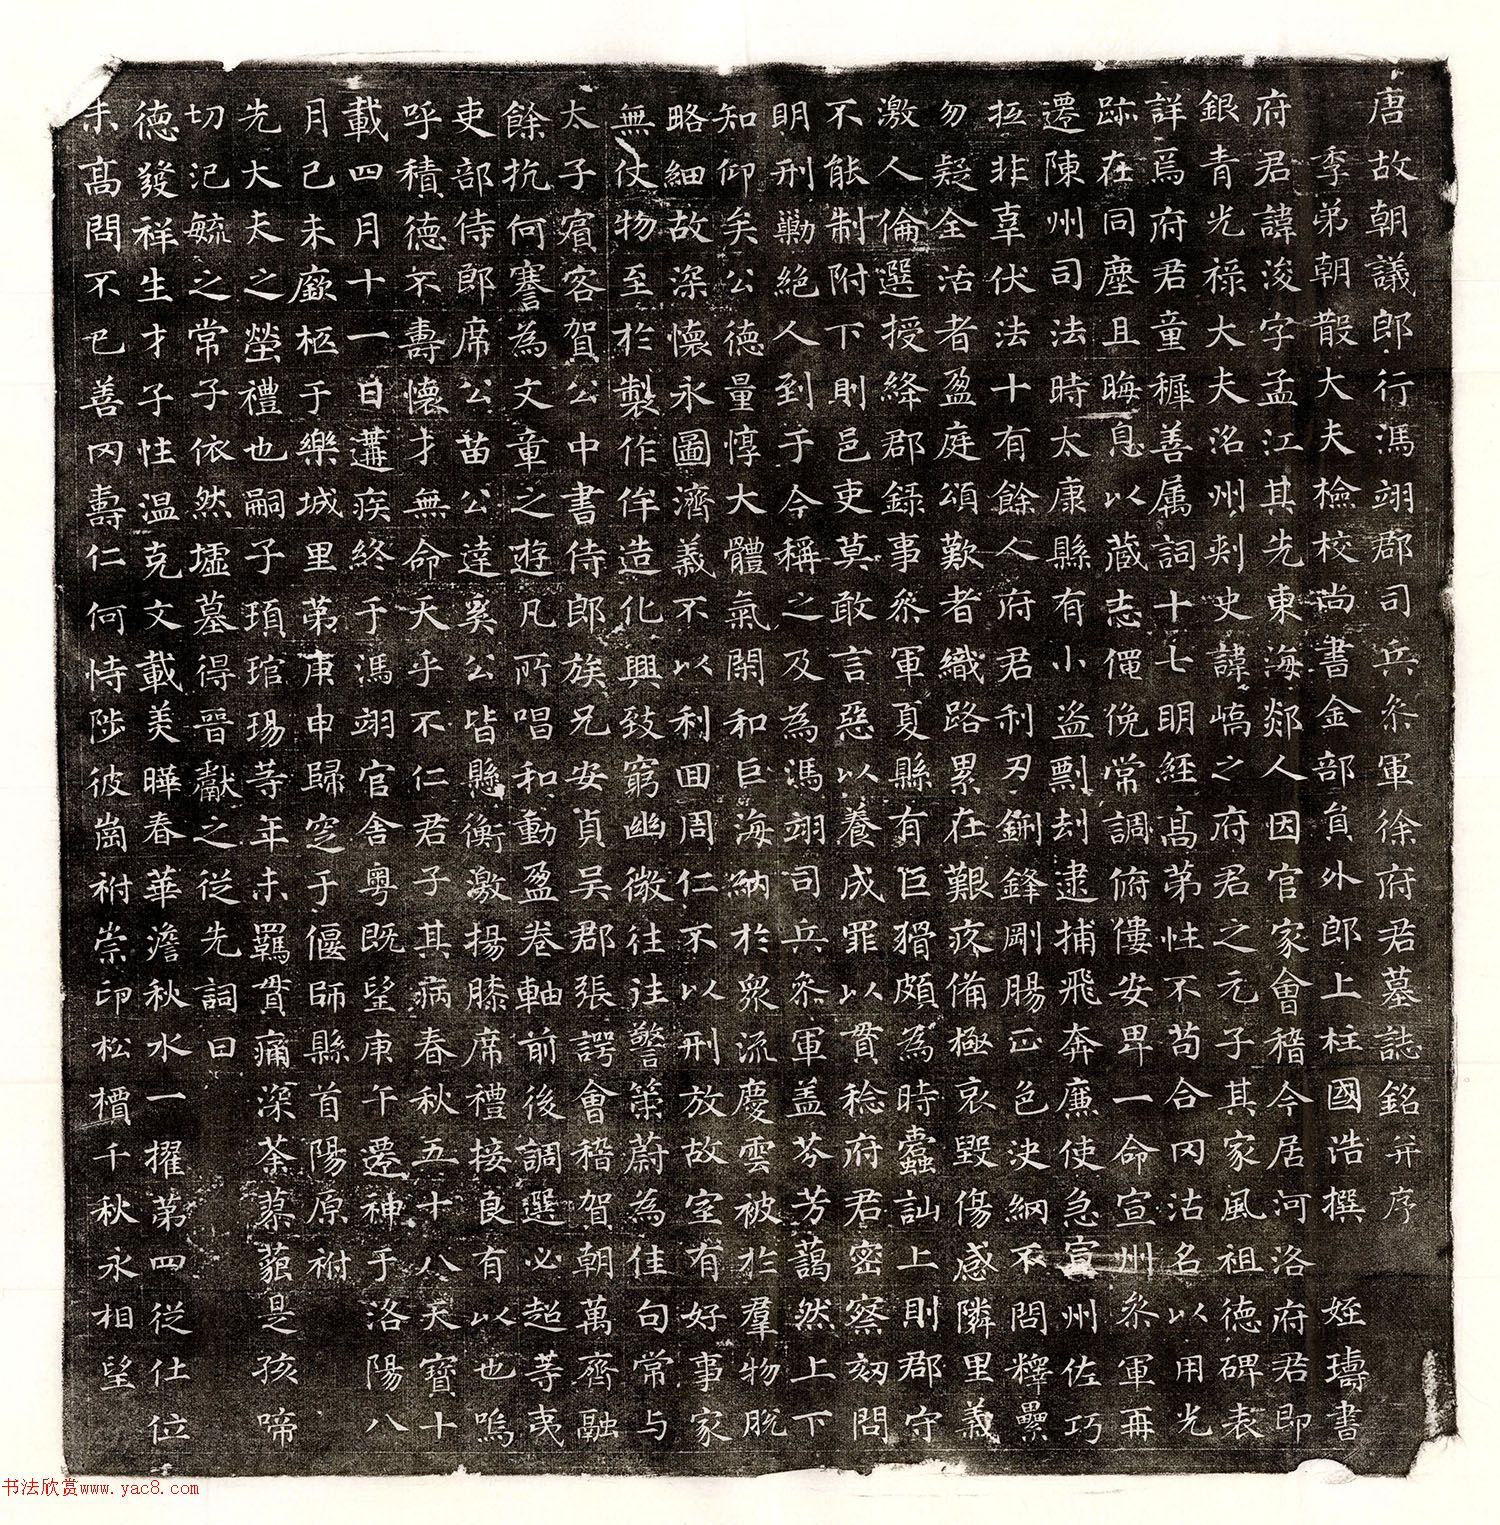 唐故朝議郎行馮翊郡司兵參軍徐府君墓誌銘并序
季弟朝散大夫檢校尚書金部員外郎上柱國浩撰 姪璹書
府君諱浚字孟江其先東海郯人因官家會稽今居河洛府君即
銀青光祿大夫洺州刺史諱嶠之府君之元子其家風祖德碑表
詳焉府君童穉善属詞十七明經高第性不苟合冈沽名以用光
跡在同塵且晦息以藏志僶俛常調俯僂安卑一命宣州參軍再
遷陳州司法時太康縣有小盜剽刦逮捕飛奔廉使急宣州佐巧
抂非辜伏法十有餘人府君利刃鉶鋒剛腸正色決網不問釋纍
勿疑全活者盈庭頌歎者織路累在艱疚備極哀毀傷感隣里義
激人倫選授絳郡錄事參軍夏縣有巨猾頗為時蠹訕上則郡守
不能制附下則邑吏莫敢言惡以養成罪以貫稔府君密察劾問
明刑勦絕人到于今稱之及為馮翊司兵參軍盖芬芳藹然上下
知仰矣公德量惇大體氣閑和巨海納於衆流慶雲被於羣物脫
略細故深懷永圖濟義不以利回周仁不以刑放故室有好事家
無仗物至於製作侔造化興致窮幽微往往警策蔚為佳句常与
太子賓客賀公中書侍郎族兄安貞吳郡張諤會稽賀朝萬齊融
餘抗何謇為文章之遊凡所唱和動盈卷軸前後調選必超等夷
吏部侍郎席公苗公達奚公皆懸衡激揚膝席禮接良有以也嗚
呼積德不壽懷才無命天乎不仁君子其病春秋五十八天寶十
載四月十一日遘疾終于馮翊官舍粤既望庚午遷神于洛陽八
月己未厥柩于樂城里第庚申歸窆于偃師縣首陽原祔
先大夫之塋禮也嗣子頊琯瑒等年未羈貫痛深荼蓼藐是孩啼
切汜毓之常子依然墟墓得晉獻之從先詞曰
德發祥生才子性溫克文載美曄春華澹秋水一擢第四從仕位
未高問不已善冈壽仁何恃陟彼崗祔崇卬松檟千秋永相望
书法欣赏www.yac8.com